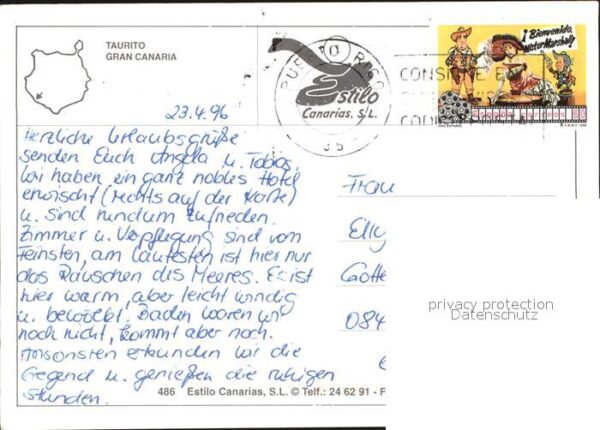 TAURITO
GRAN CANARIA
Estilo
Canarias, S.L.
PUERTO RICO
CONSIGNE EL
¡Bienvenido,
míster Marshall!
23.4.96
Herzliche Urlaubsgrüße
senden Euch Angela u. Tobias.
Wir haben ein ganz nobles Hotel
erwischt (rechts auf der Karte)
u. sind rundum zufrieden.
Zimmer u. Verpflegung sind vom
Feinsten, am lautesten ist hier nur
das Rauschen des Meeres. Es ist
hier warm, aber leicht windig
u. bewölkt. Baden waren wir
noch nicht, kommt aber noch.
Ansonsten erkunden wir die
Gegend u. genießen die ruhigen
Stunden.
Frau
Elly
Götte
084
privacy protection
Datenschutz
486 Estilo Canarias, S.L. © Telf.: 24 62 91 - F